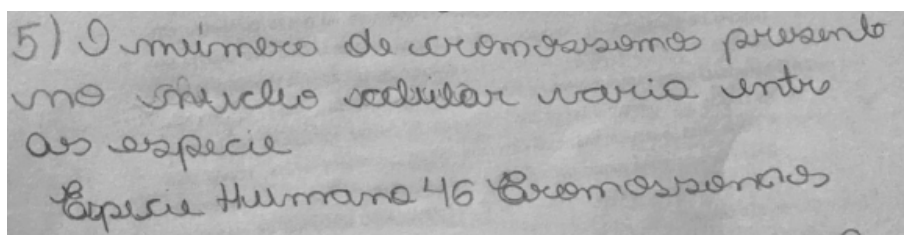 5) O número de cromossomo presente
no núcleo celular varia entre
as especie
Especie Humana 46 Cromossomos